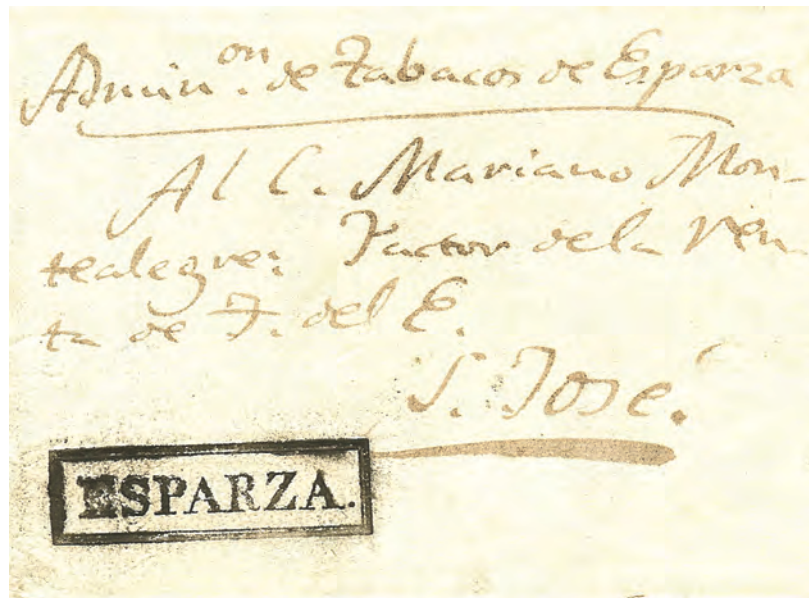 Admin.on de Tabacos de Esparza
Al C. Mariano Mon-
tealegre: Factor de la Ren-
ta de T. del E.
S. José.
ESPARZA.